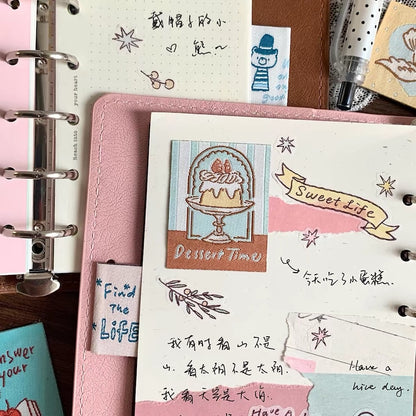 戴帽子的小
熊~
Reach into your heart
Sweet Life
Dessert Time
今天吃了小蛋糕.
Find
The
LIFE
Answer
your
我有时看山不是
山. 看太阳不是太阳.
我看天总是大海
Have a
nice day.
Have a